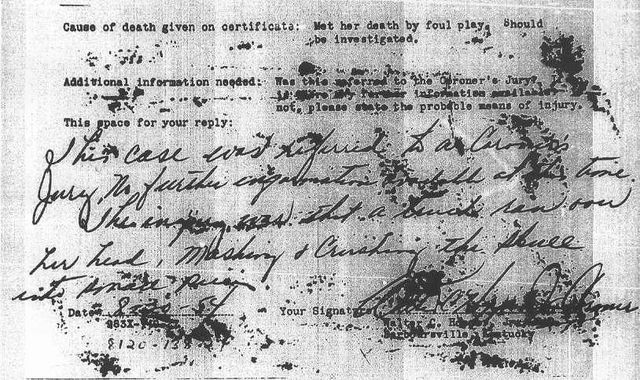 Cause of death given on certificate: Met her death by foul play. Should
be investigated.
Additional information needed: Was this referred to the Coroner's Jury?
is there any further information available
not, please state the probable means of injury.
This space for your reply:
This case was referred to a Coroner's
Jury. No further information at this time.
The injury was that a truck ran over
her head, Mashing & Crushing the Skull
into small
Date 8-20-54 Your Signature Coroner
Walter C.
Kentucky
8120-